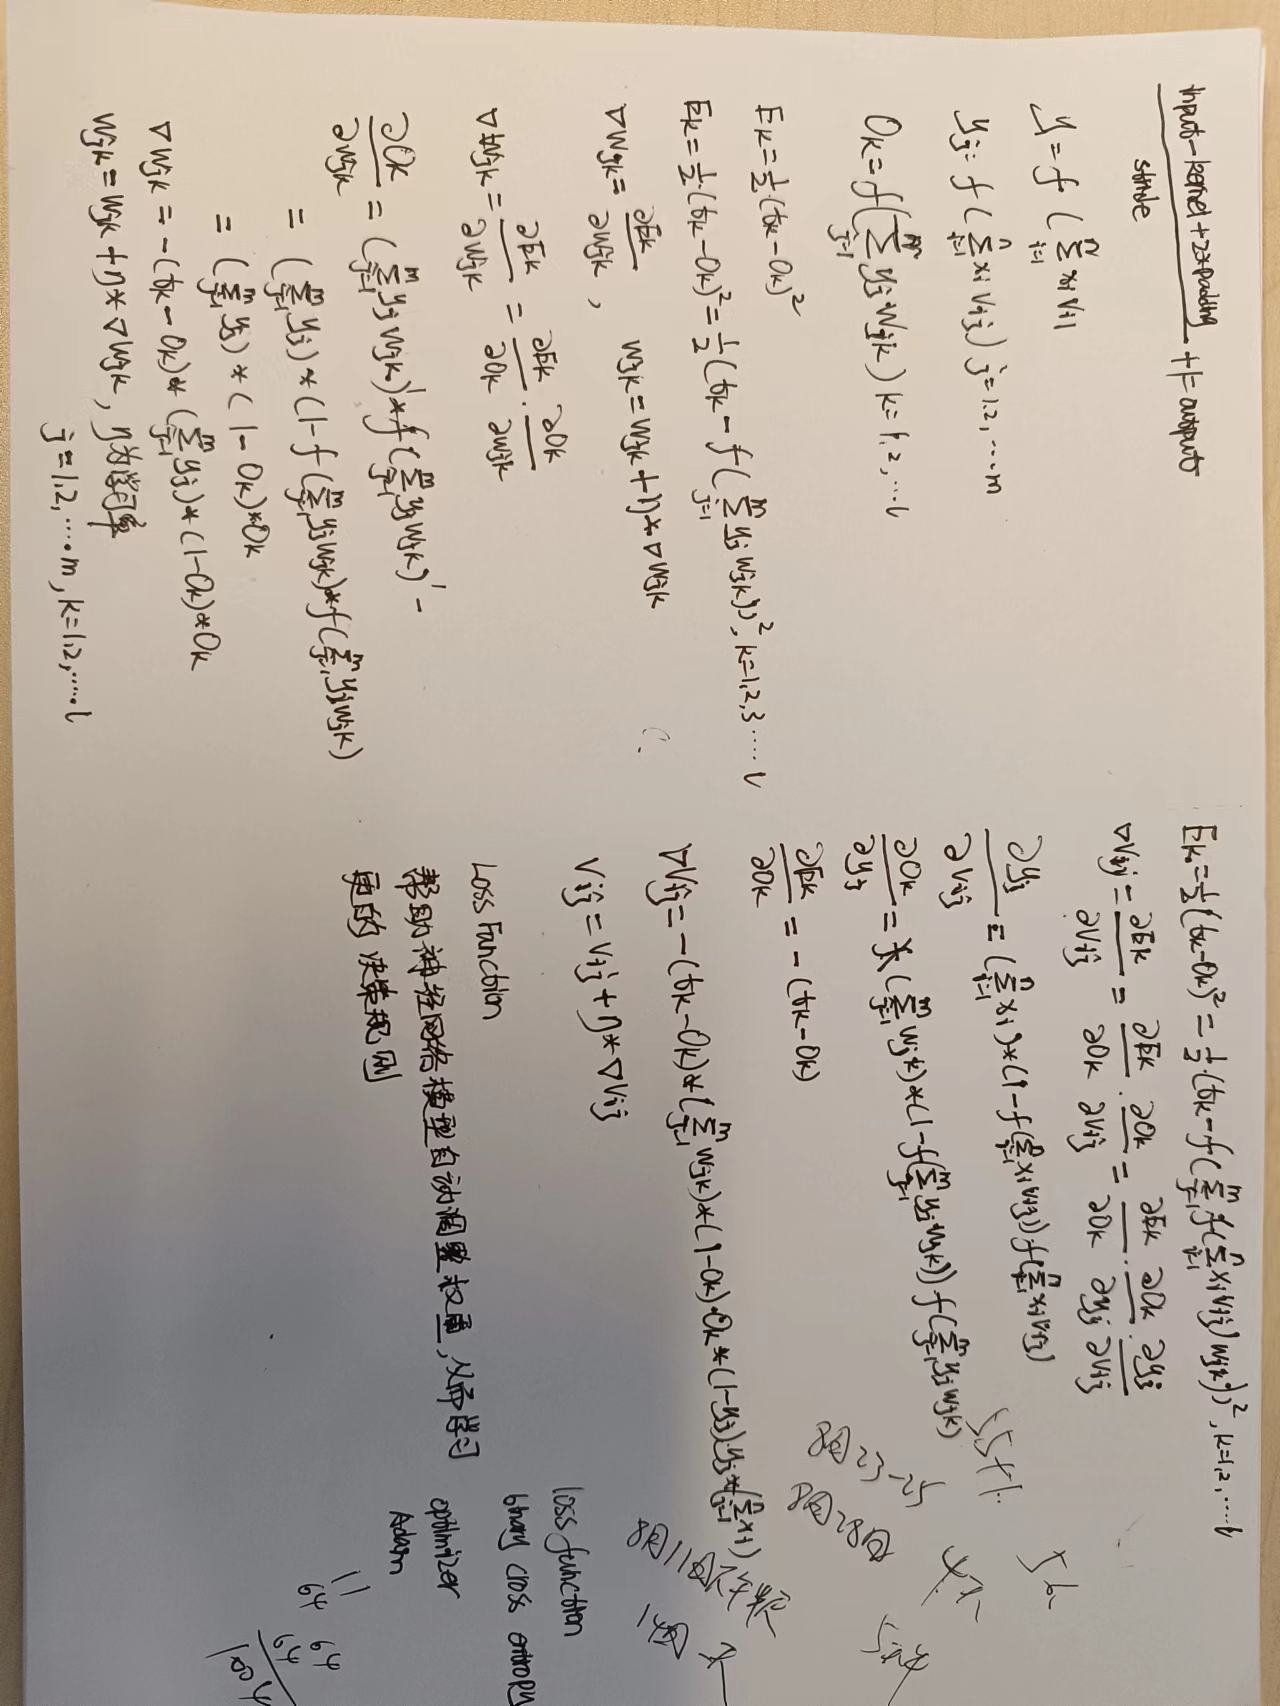 input-kernel+2*padding
stride
+1=output
y = f ( ∑ⁿᵢ₌₁ xᵢ Vᵢ₁
yⱼ = f ( ∑ⁿᵢ₌₁ xᵢ Vᵢⱼ ) j=1.2, ····m
Oₖ = f( ∑ᵐⱼ₌₁ yⱼ·Wⱼₖ ) k=1.2, ···l
Eₖ = ½·(tₖ-Oₖ)²
Eₖ = ½·(tₖ-Oₖ)² = ½ (tₖ - f ( ∑ᵐⱼ₌₁ yⱼ wⱼₖ))², k=1,2,3 ···· l
▽Wⱼₖ = ∂Eₖ/∂wⱼₖ , wⱼₖ = wⱼₖ + η * ▽wⱼₖ
▽Wⱼₖ = ∂Eₖ/∂wⱼₖ = ∂Eₖ/∂Oₖ · ∂Oₖ/∂wⱼₖ
∂Oₖ/∂wⱼₖ = ( ∑ᵐⱼ₌₁ yⱼ wⱼₖ )' * f ( ∑ᵐⱼ₌₁ yⱼ wⱼₖ )' -
= ( ∑ᵐⱼ₌₁ yⱼ ) * (1 - f ( ∑ᵐⱼ₌₁ yⱼ wⱼₖ ) * f ( ∑ᵐⱼ₌₁ yⱼ wⱼₖ )
= ( ∑ᵐⱼ₌₁ yⱼ ) * ( 1 - Oₖ ) * Oₖ
▽wⱼₖ = -(tₖ - Oₖ) * ( ∑ᵐⱼ₌₁ yⱼ ) * (1-Oₖ) * Oₖ
wⱼₖ = wⱼₖ + η * ▽wⱼₖ , η为学习率
j = 1.2, ····m , k=1.2, ····l
Eₖ = ½·(tₖ-Oₖ)² = ½·(tₖ - f ( ∑ᵐⱼ₌₁ f( ∑ⁿᵢ₌₁ xᵢ Vᵢⱼ) wⱼₖ))², k=1,2, ····l
▽Vᵢⱼ = ∂Eₖ/∂Vᵢⱼ = ∂Eₖ/∂Oₖ · ∂Oₖ/∂Vᵢⱼ = ∂Eₖ/∂Oₖ · ∂Oₖ/∂yⱼ · ∂yⱼ/∂Vᵢⱼ
∂yⱼ/∂Vᵢⱼ = ( ∑ⁿᵢ₌₁ xᵢ ) * (1 - f( ∑ⁿᵢ₌₁ xᵢ Vᵢⱼ)) · f( ∑ⁿᵢ₌₁ xᵢ Vᵢⱼ)
∂Oₖ/∂yⱼ = ( ∑ᵐⱼ₌₁ wⱼₖ ) * (1 - f( ∑ᵐⱼ₌₁ yⱼ wⱼₖ)) f( ∑ᵐⱼ₌₁ yⱼ wⱼₖ)
∂Eₖ/∂Oₖ = - (tₖ-Oₖ)
▽Vᵢⱼ = -(tₖ-Oₖ) * ( ∑ᵐⱼ₌₁ wⱼₖ ) * (1-Oₖ)·Oₖ * (1-yⱼ)·yⱼ * ( ∑ⁿᵢ₌₁ xᵢ )
Vᵢⱼ = Vᵢⱼ + η * ▽Vᵢⱼ
Loss Function
帮助神经网络模型自动调整权重,从而学习
更的 决策规则
8月23-25
8月28日
loss function
binary cross entropy
optimizer
Adam
11
64
64
64
1004